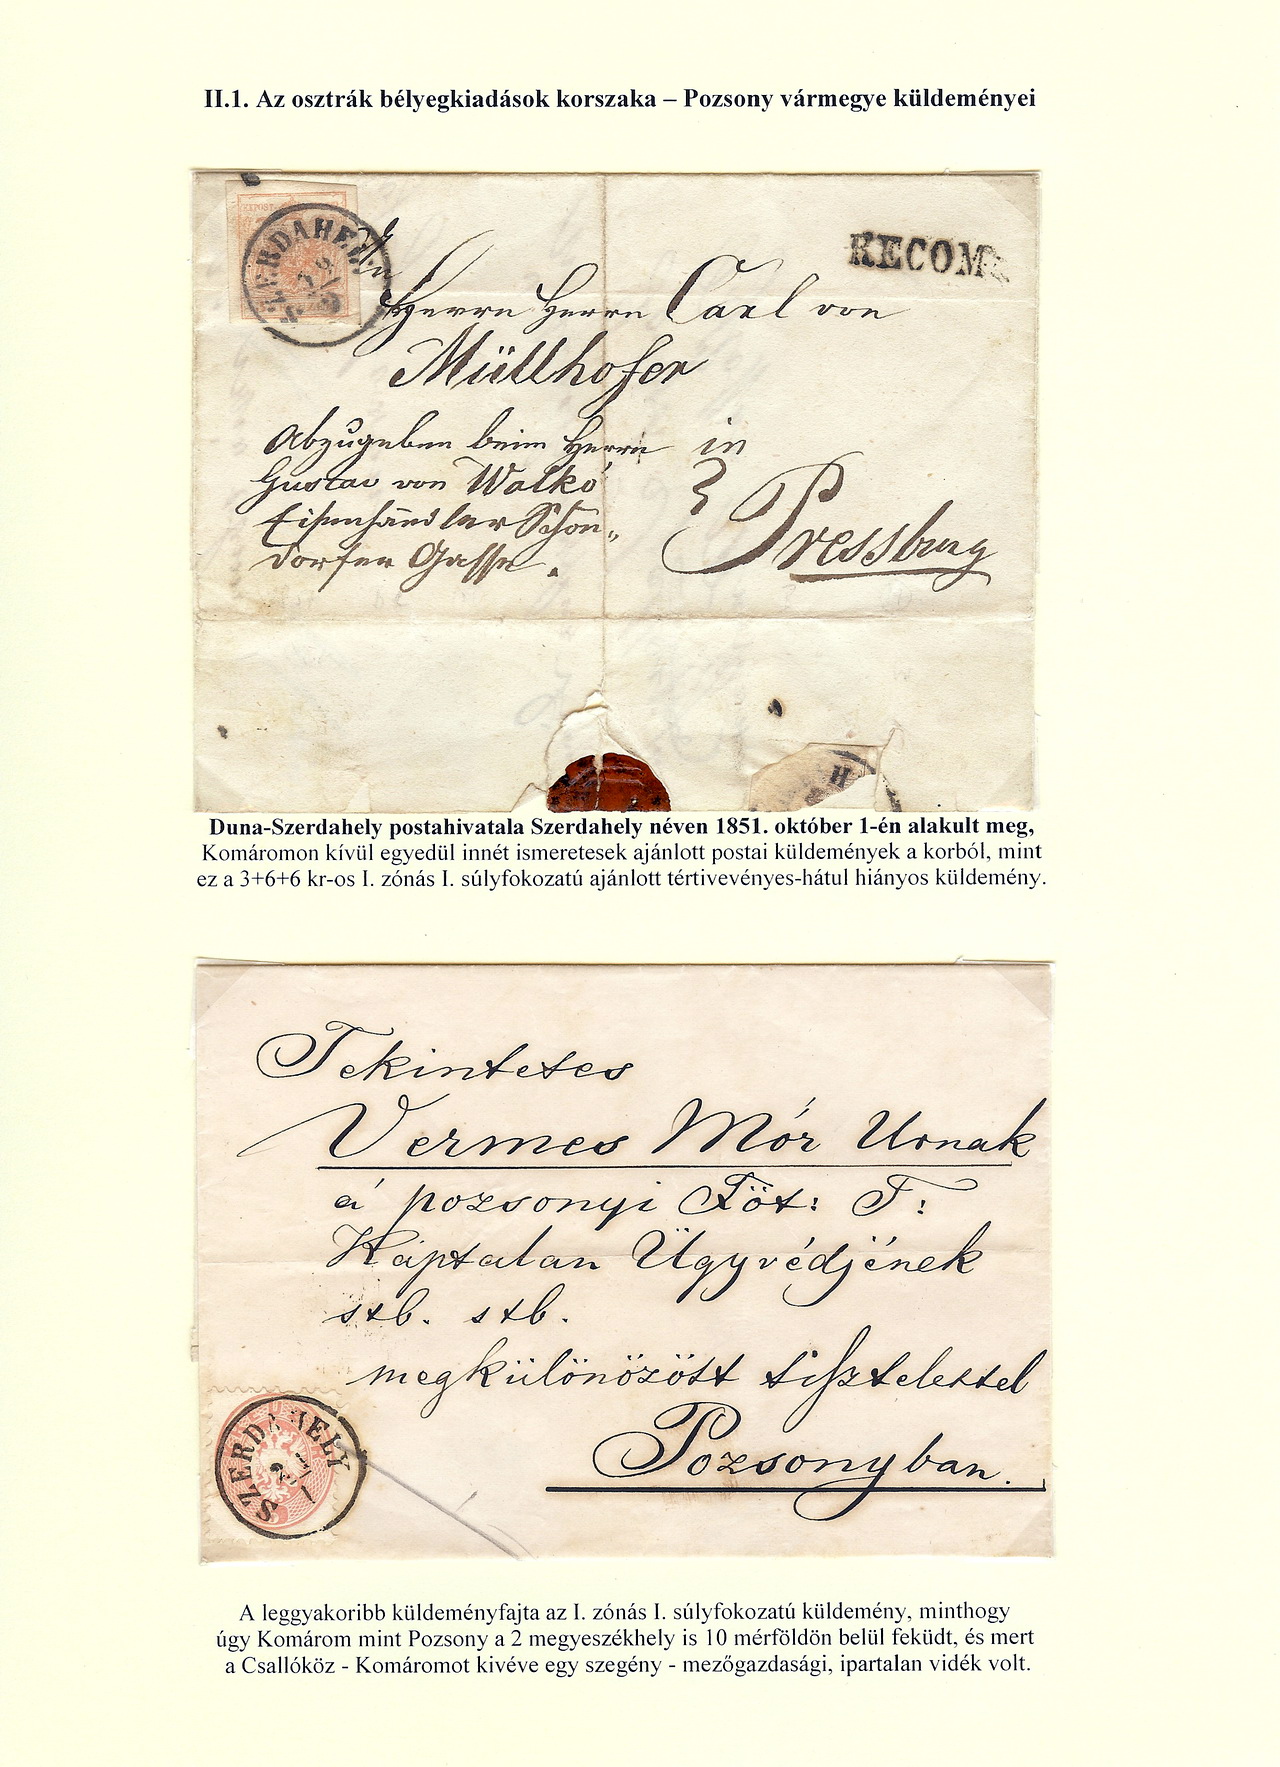 II.1. Az osztrák bélyegkiadások korszaka – Pozsony vármegye küldeményei
SZERDAHELY
RECOM.
An
Herrn Herrn Carl von
Müllhofer
Abzugeben beim Herrn in
Gustav von Walkó
Eisenhändler Schön„
dorfer Gasse.
Pressburg
Duna-Szerdahely postahivatala Szerdahely néven 1851. október 1-én alakult meg,
Komáromon kívül egyedül innét ismeretesek ajánlott postai küldemények a korból, mint
ez a 3+6+6 kr-os I. zónás I. súlyfokozatú ajánlott tértivevényes-hátul hiányos küldemény.
Tekintetes
Vermes Mór Urnak
á pozsonyi Föt: T:
Káptalan Ügyvédjének
stb. stb.
megkülönözött tisztelettel
Pozsonyban.
SZERDAHELY
A leggyakoribb küldeményfajta az I. zónás I. súlyfokozatú küldemény, minthogy
úgy Komárom mint Pozsony a 2 megyeszékhely is 10 mérföldön belül feküdt, és mert
a Csallóköz - Komáromot kivéve egy szegény - mezőgazdasági, ipartalan vidék volt.